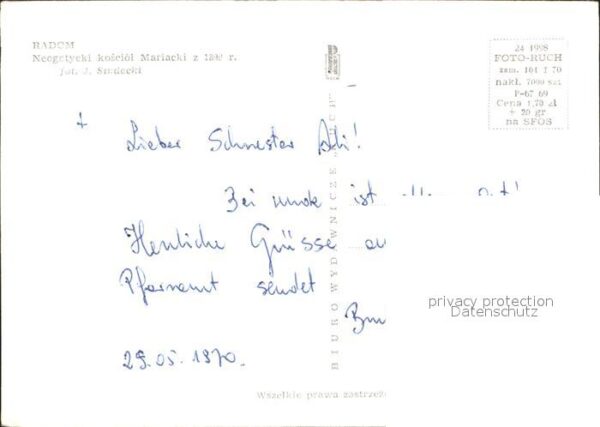 RADOM
Neogotycki kościół Mariacki z 1899 r.
fot. J.
24 1998
FOTO-RUCH
zam. 101 I 70
nakł. 7000 szt
P-67 69
Cena 1,70 zł
+ 20 gr
na SFOS
+
Lieber Schwester Adi!
Bei mude ist
Herzliche Grüsse
Pfarramt sendet
29.05.1970.
BIURO WYDAWNICZE „RUCH”
Wszelkie prawa zastrzeż
privacy protection
Datenschutz